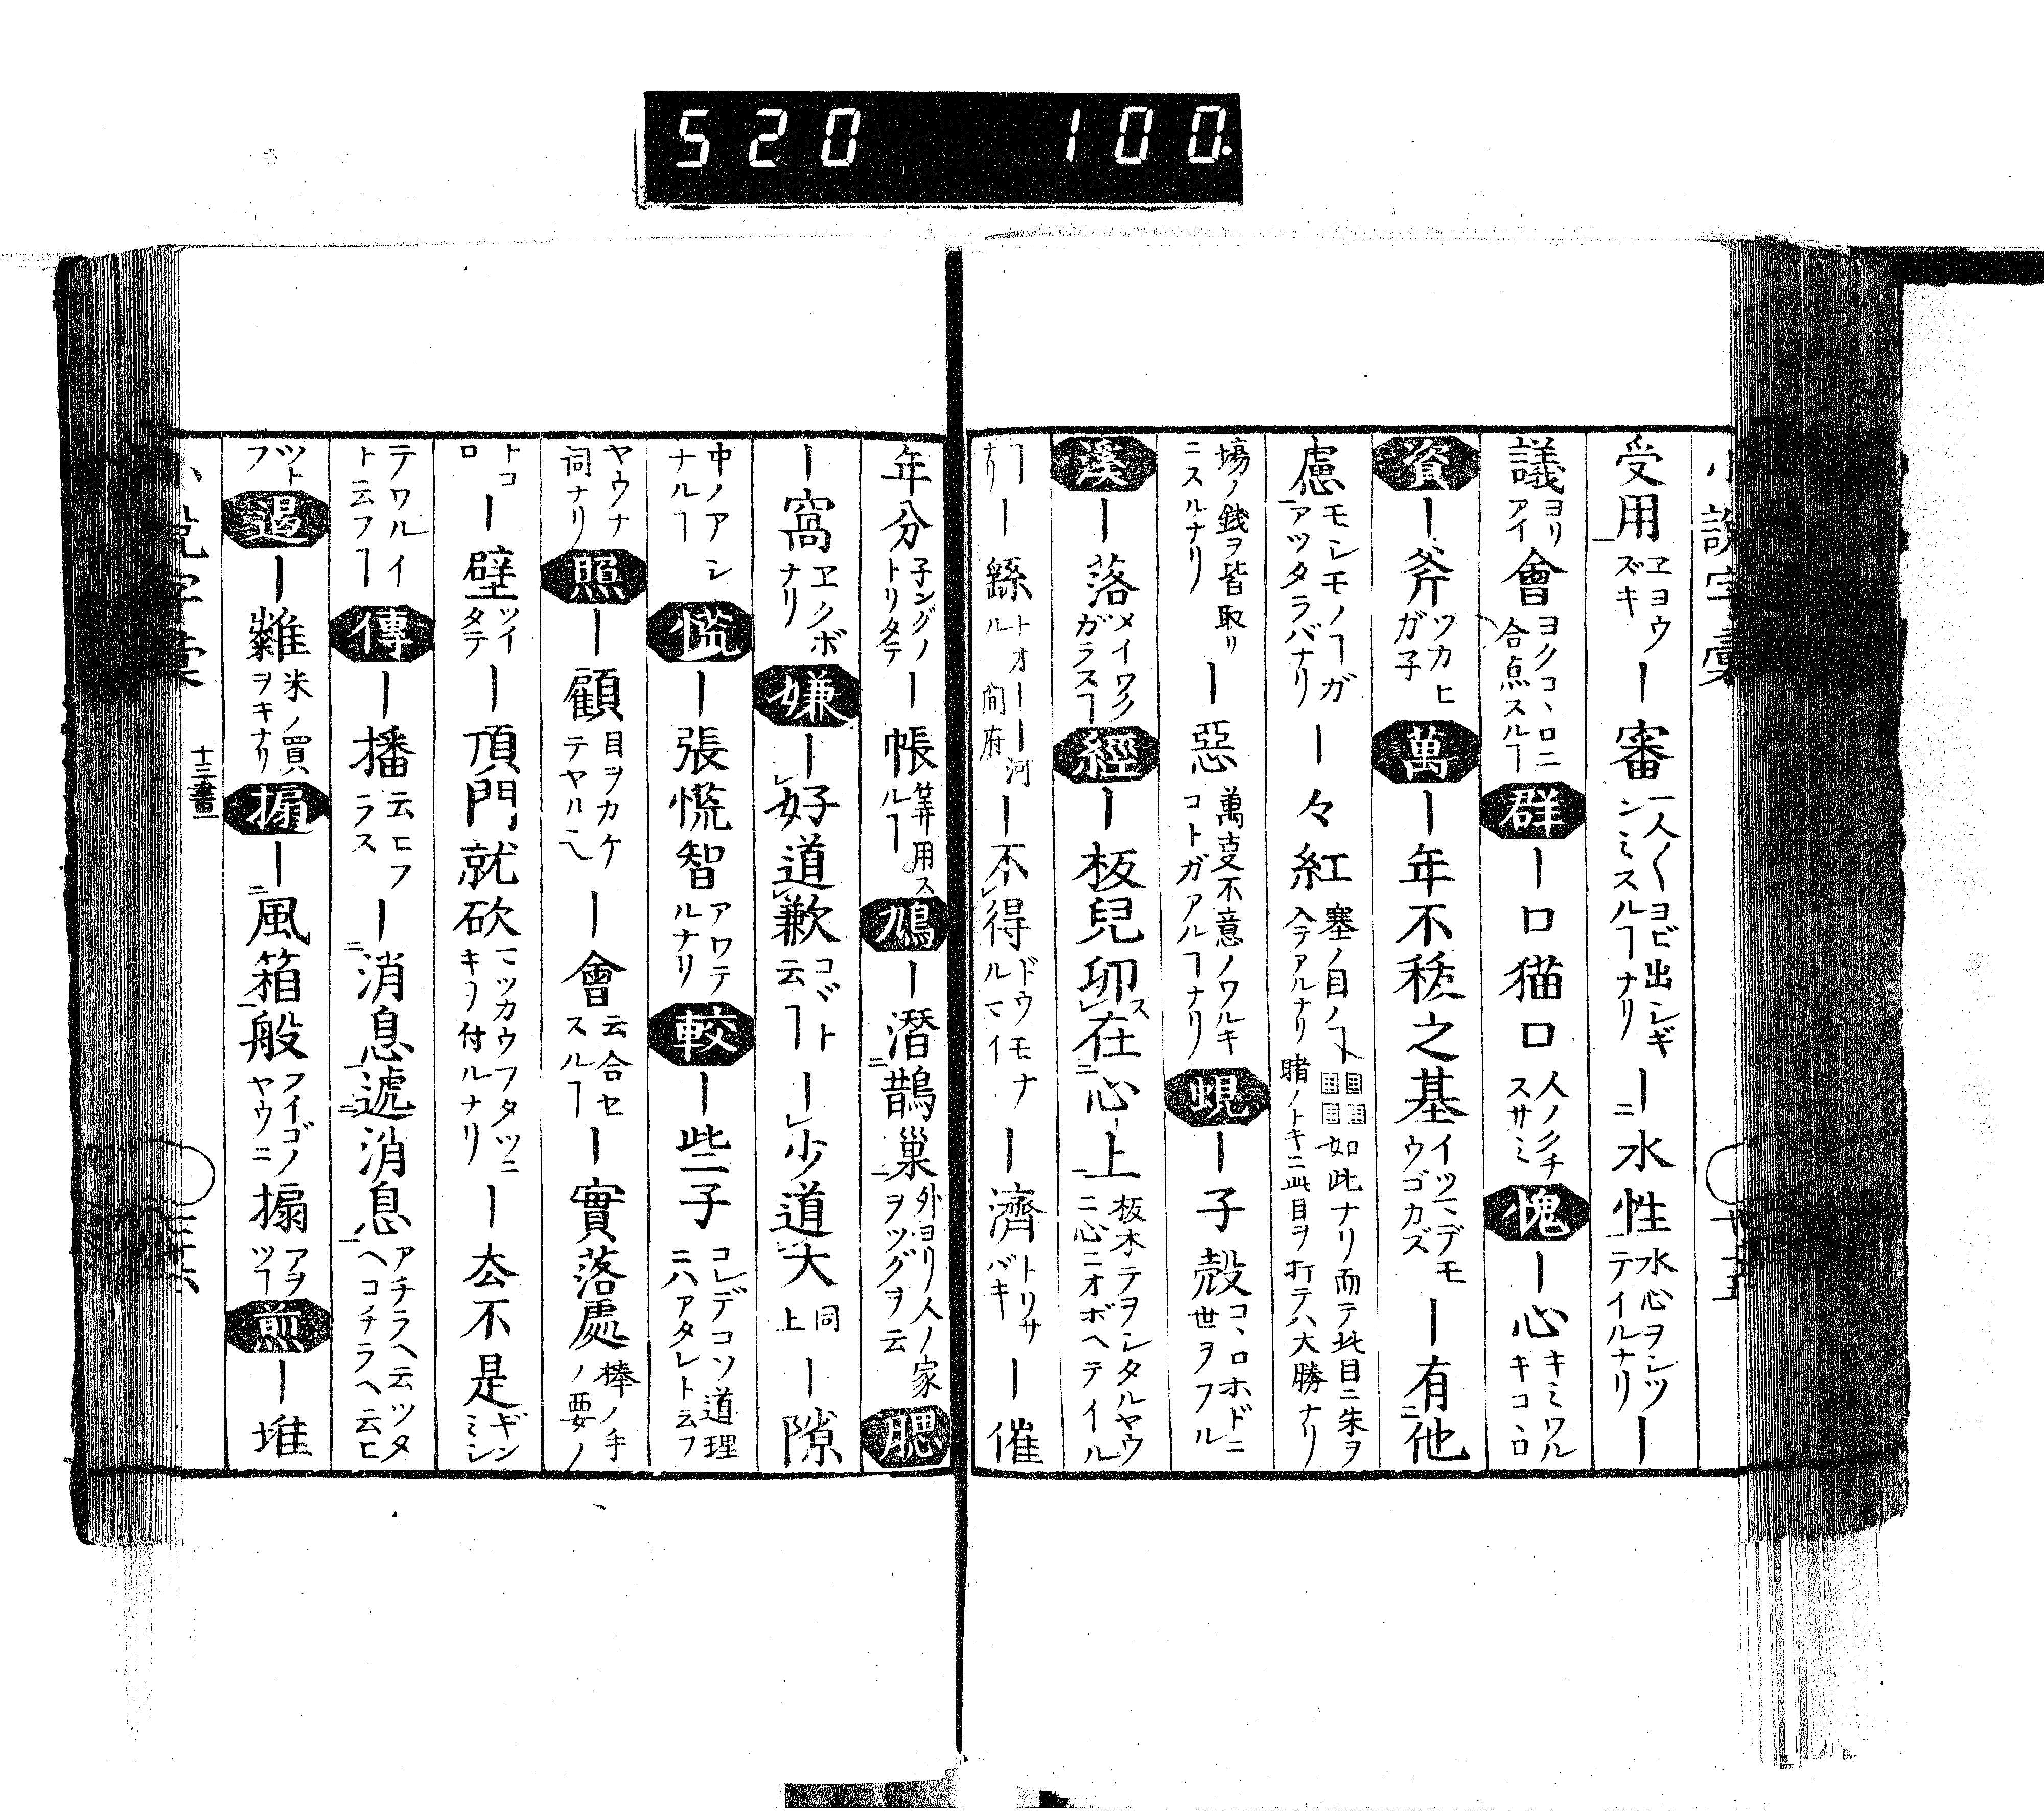 520 100.
小説字彙
受用ヱヨウズキ｜審一人〱ヨビ出シギンミスルヿナリ｜水性水心ヲシツテイルナリ｜
議ヨリアイ會ヨクコヽロニ合点スルヿ群｜口猫口人ノクチスサミ愧｜心キミワルキコヽロ
資｜斧ツカヒガ子萬｜年不移之基イツマデモウゴカズ｜有他
慮モシモノヿガアツタラバナリ｜々紅塞ノ目ノ如此ナリ而テ此目ニ朱ヲ入テアルナリ賭ノトキニ此目ヲ打テハ大勝ナリ
場ノ銭ヲ皆取リニスルナリ｜惡萬支不意ノワルキコトガアルヿナリ蜆｜子殻コヽロホドニ世ヲフル
漢｜落メイワクガラスヿ經｜板兒印在心上板木テヲシタルヤウニ心ニオボヘテイル
ヿナリ｜繇トオール｜河間府｜不得ドウモナルマイ｜濟トリサバキ｜催
年分子ングノトリタテ｜帳筭用スルヿ鳩｜潜鵲巢外ヨリ人ノ家ヲツグヲ云腮
｜窩ヱクボナリ嫌｜好道歉コゴト云ヿ｜少道大同上｜隙
中ノアシナルヿ慌｜張慌智アワテルナリ較｜些子コレデコソ道理ニハアタレト云フ
ヤウナ詞ナリ照｜顧目ヲカケテヤル｜會云合セスルヿ｜實落處棒ノ手ノ要ノ
トコロ｜壁ツイタテ｜頂門就砍マツカウフタツニキリ付ルナリ｜厺不是ギンミシ
テワルイト云フヿ傳｜播云ヒフラス｜消息遞消息アチラヘ云ツタヘコチラヘ云ヒ
ツトフ遏｜糶米ノ買ヲキナリ搧｜風箱般フイゴノヤウニ搧アヲツヿ煎｜堆
小説字彙 十三畫